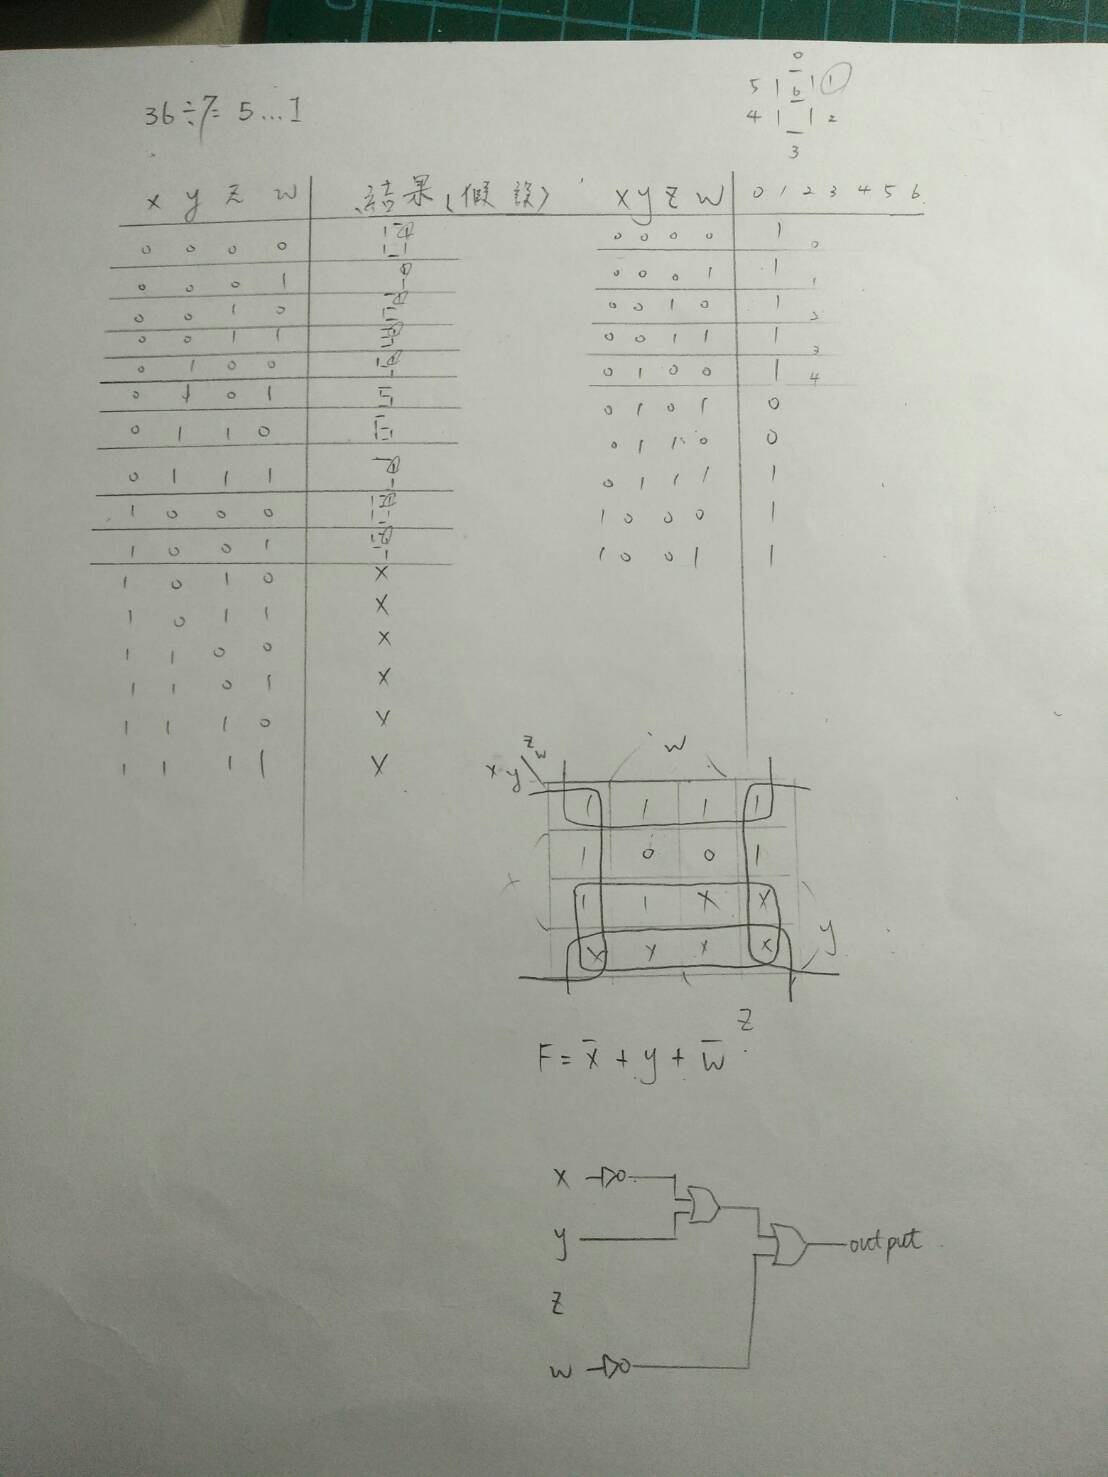 36÷7= 5...1
0
5 6 1
4 2
3
x y z w 結果(假設)
0 0 0 0
0 0 0 1
0 0 1 0
0 0 1 1
0 1 0 0
0 1 0 1
0 1 1 0
0 1 1 1
1 0 0 0
1 0 0 1
1 0 1 0 X
1 0 1 1 X
1 1 0 0 X
1 1 0 1 X
1 1 1 0 X
1 1 1 1 X
x y z w 0 1 2 3 4 5 6
0 0 0 0 1 0
0 0 0 1 1 1
0 0 1 0 1
0 0 1 1 1 3
0 1 0 0 1 4
0 1 0 1 0
0 1 1 0 0
0 1 1 1 1
1 0 0 0 1
1 0 0 1 1
zw w
xy
1 1 1 1
1 0 0 1
x
1 1 X X
y
X X X X
z
F = x̅ + y + w̅
x
y
output
z
w